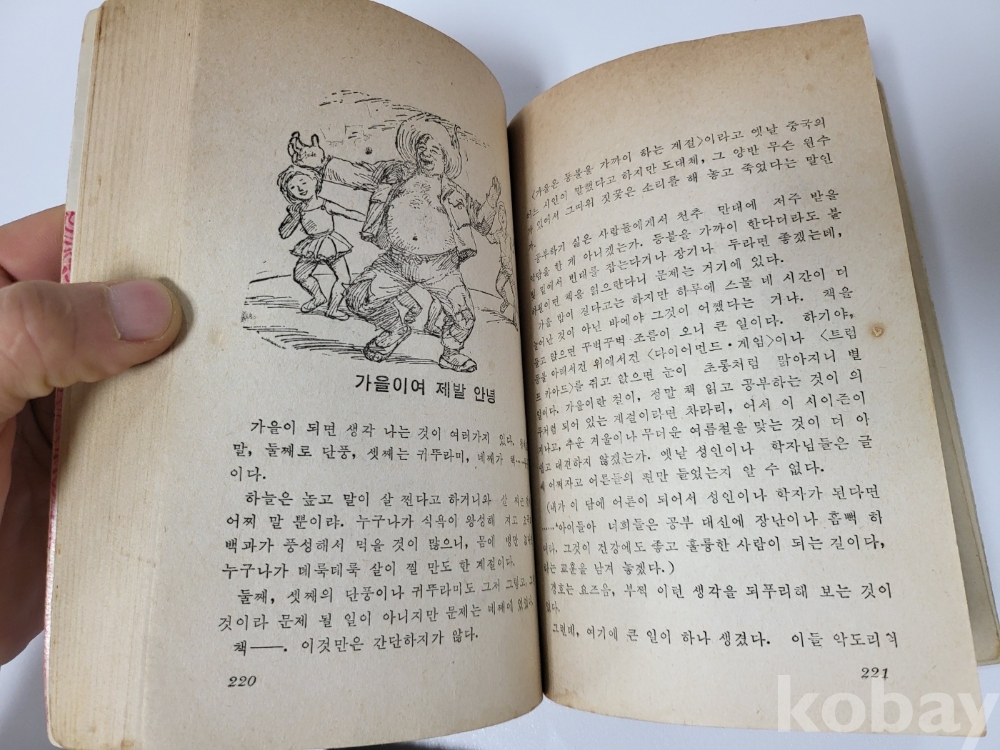 가을이여 제발 안녕
가을이 되면 생각 나는 것이 여러가지 있다.
말, 둘째로 단풍, 셋째는 귀뚜라미, 네째가 책…
이다.
하늘은 높고 말이 살 찐다고 하거니와 살
어찌 말 뿐이랴. 누구나가 식욕이 왕성해 지고
백과가 풍성해서 먹을 것이 많으니, 몸에 병만
누구나가 데룩데룩 살이 찔 만도 한 계절이다.
둘째, 셋째의 단풍이나 귀뚜라미도 그저 그렇고,
것이라 문제 될 일이 아니지만 문제는 네째에 있었다.
책――. 이것만은 간단하지가 않다.
220
<가을은 등불을 가까이 하는 계절>이라고 옛날 중국의
어느 시인이 말했다고 하지만 도대체, 그 양반 무슨 원수
가 있어서 그따위 짓궂은 소리를 해 놓고 죽었다는 말인
공부하기 싫은 사람들에게서 천추 만대에 저주 받을
을 한 게 아니겠는가. 등불을 가까이 한다더라도 불
밑에서 빈대를 잡는다거나 장기나 두라면 좋겠는데,
책을 읽으란다니 문제는 거기에 있다.
가을 밤이 길다고는 하지만 하루에 스물 네 시간이 더
늘어난 것이 아닌 바에야 그것이 어쨌다는 거냐. 책을
들고 앉으면 꾸벅꾸벅 조름이 오니 큰 일이다. 하기야,
등불 아래서진 위에서진 <다이어먼드·게임>이나 <트럼
프 카아드>를 쥐고 앉으면 눈이 초롱처럼 맑아지니 별
일이다. 가을이란 철이, 정말 책 읽고 공부하는 것이 의
무처럼 되어 있는 계절이라면 차라리, 어서 이 시이즌이
지나고, 추운 겨울이나 무더운 여름철을 맞는 것이 더 아
쉽고 대견하지 않겠는가. 옛날 성인이나 학자님들은 글
쎄 어쩌자고 어른들의 편만 들었는지 알 수 없다.
(내가 이 담에 어른이 되어서 성인이나 학자가 된다면
……'아이들아 너희들은 공부 대신에 장난이나 흠뻑 하
여다. 그것이 건강에도 좋고 훌륭한 사람이 되는 길이다,
하는 교훈을 남겨 놓겠다.)
경호는 요즈음, 부쩍 이런 생각을 되뿌리해 보는 것이
었다.
그런데, 여기에 큰 일이 하나 생겼다. 이들 악도리격
221
kobay